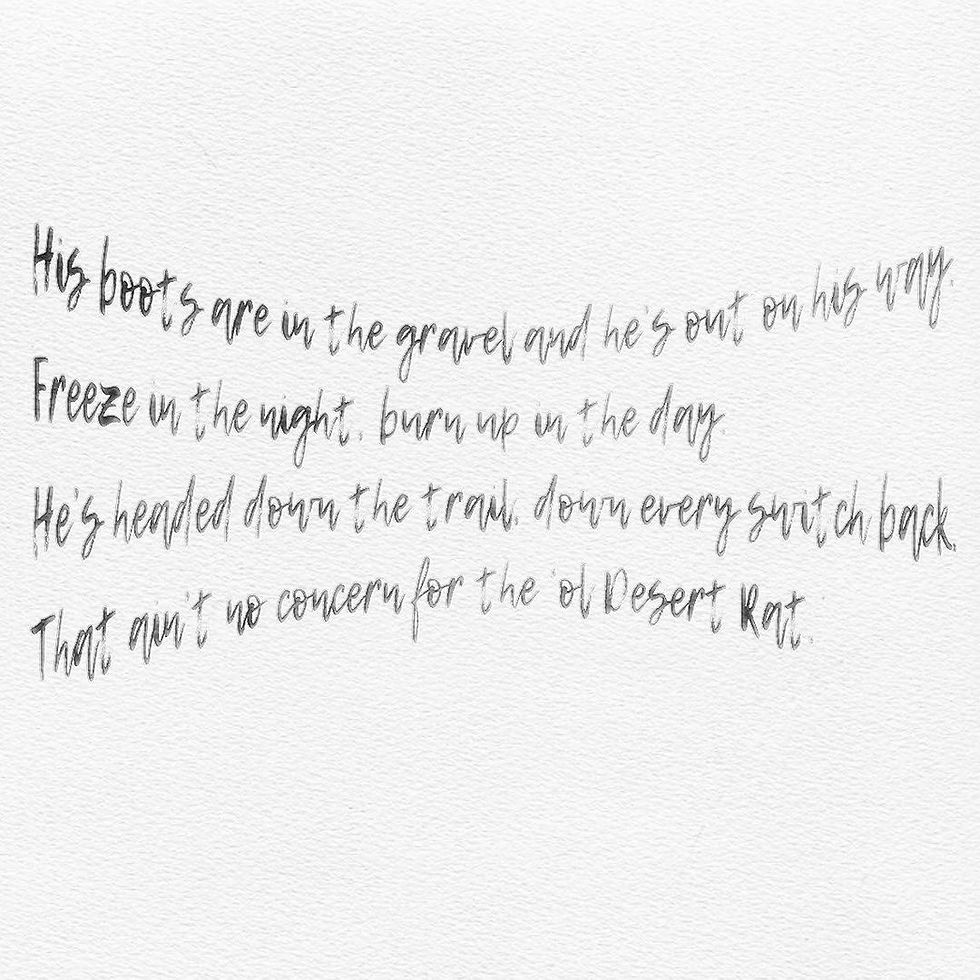 His boots are in the gravel and he's out on his way.
Freeze in the night, burn up in the day.
He's headed down the trail, down every switch back,
That ain't no concern for the 'ol Desert Rat.